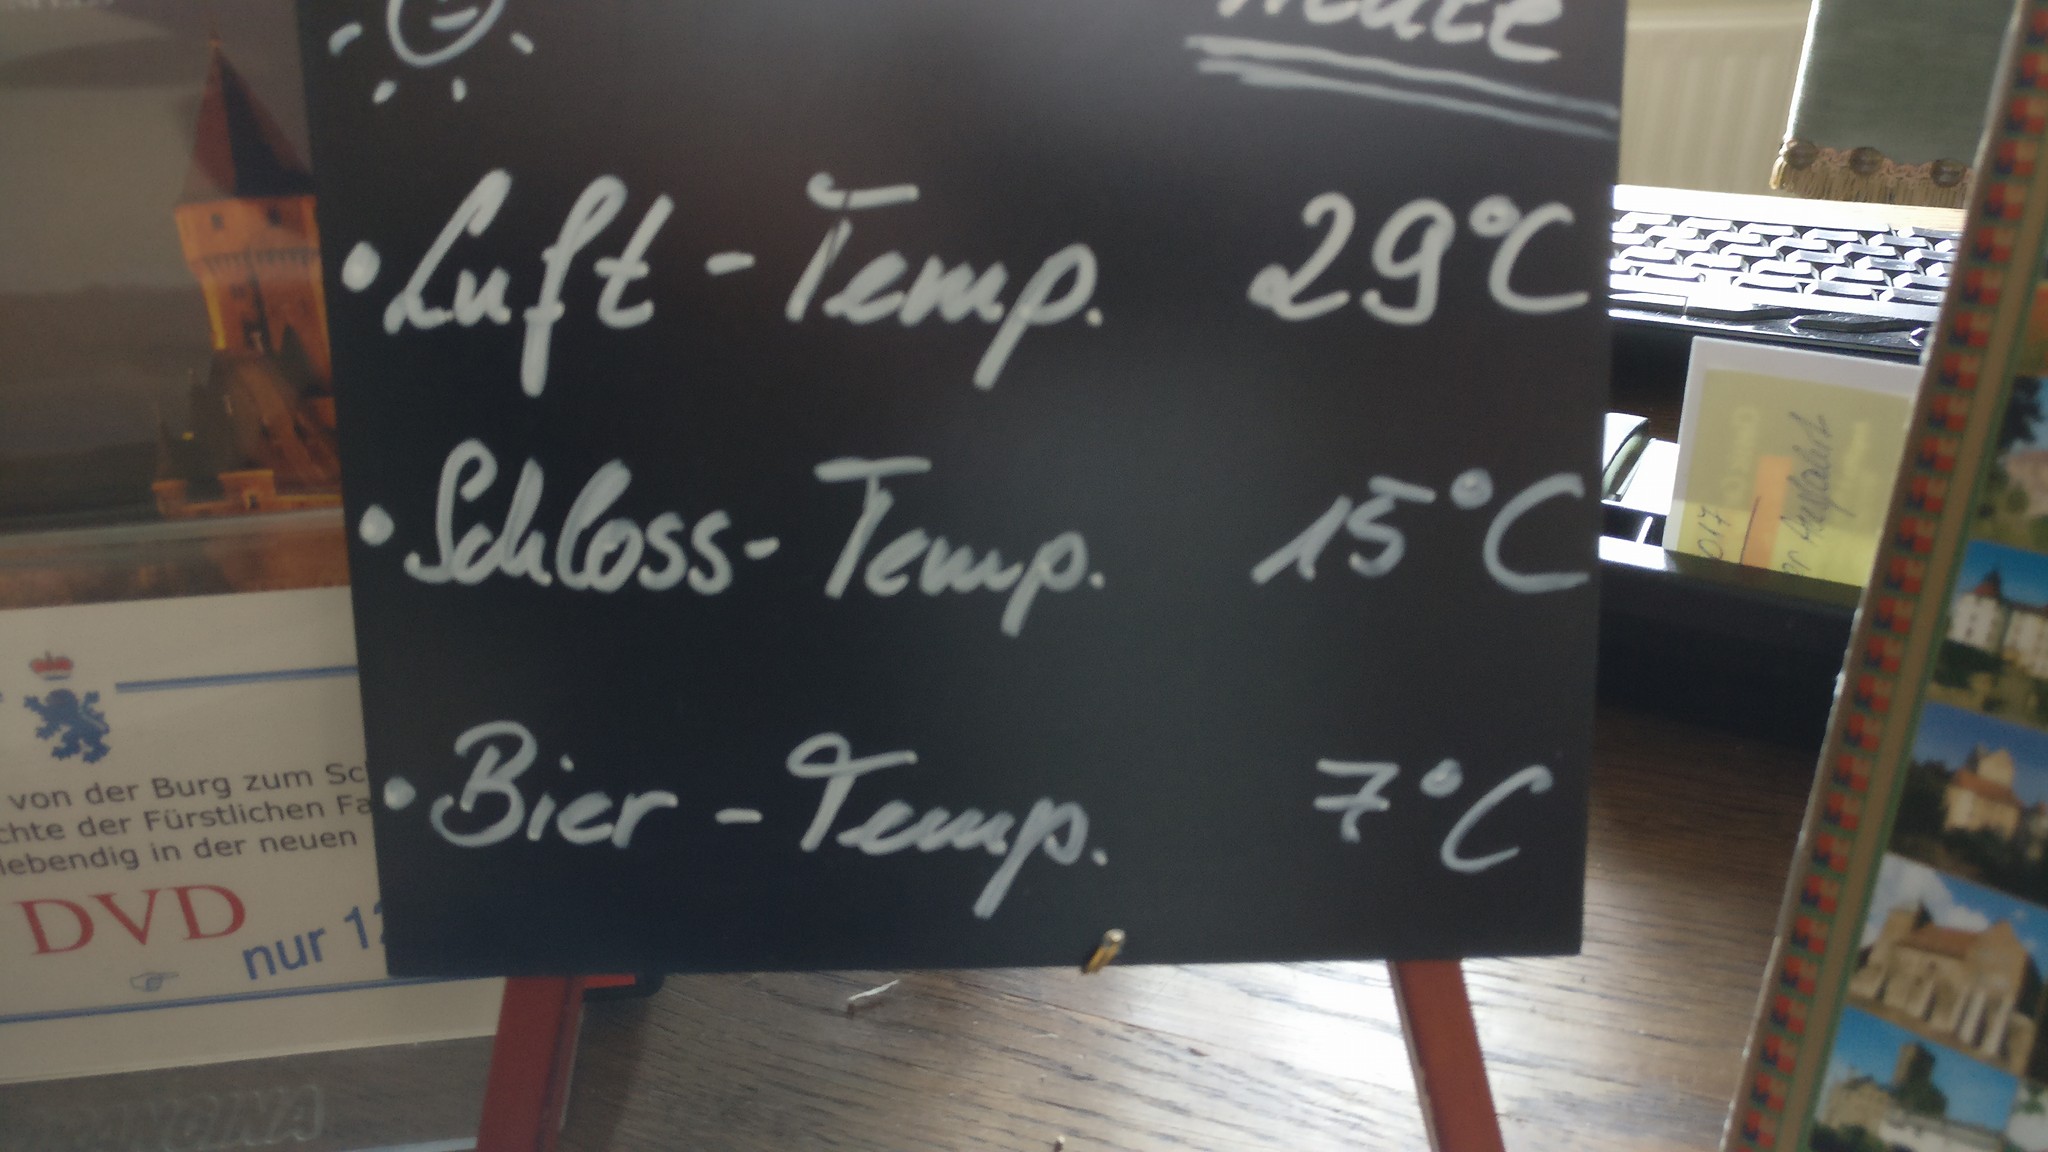 Heute
• Luft-Temp. 29°C
• Schloss-Temp. 15°C
• Bier-Temp. 7°C
von der Burg zum Sc
chte der Fürstlichen Fa
lebendig in der neuen
DVD
nur 12